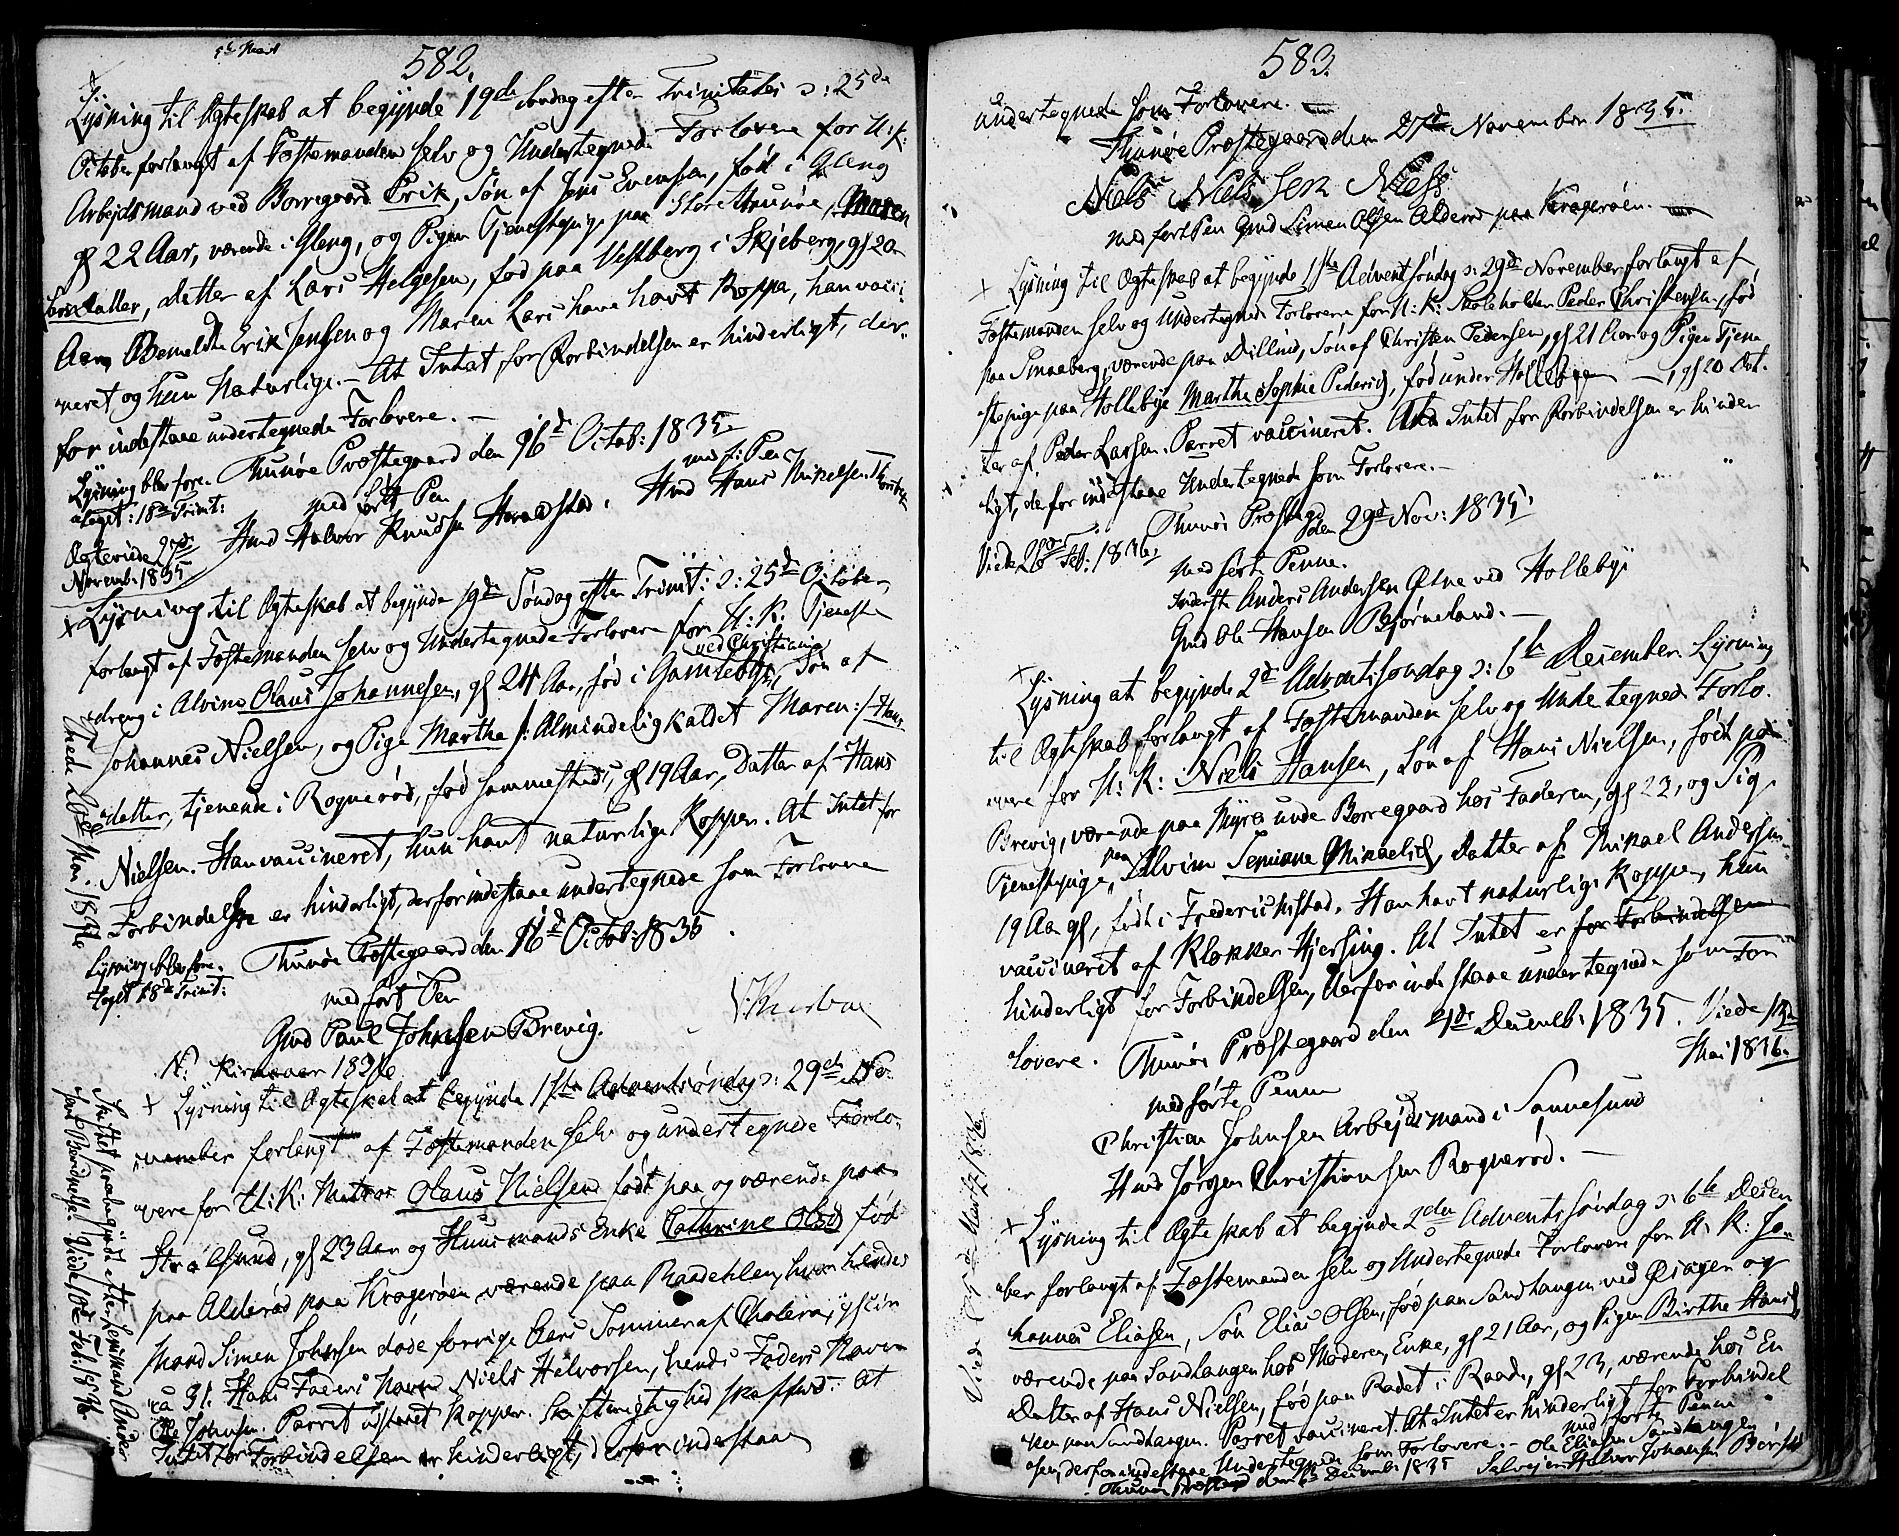 582.
Lysning til Ægteskab at begynde 19de Søndag efter Trinitatis ɔ: 25de
October forlangt af Fæstemanden selv og Undertegnede Forlovere for U: K:
Arbejdsmand ved Borregaard Erik, Søn af Jens Evensen, fød i Gleng
gl 22 Aar, værende i Gleng, og Pigen Tjenestepige paa Store Thunøe, Maren
Larsdatter, datter af Lars Helgesen, fød paa Vestberg i Skjeberg, gl 20
Aar. Bemeldte Erik Jensen og Maren Lars have havt Kopper, han vacci-
neret og hun Naturlige. – At Intet for Forbindelsen er hinderligt, der-
for indestaae undertegnede Forlovere. –
Thunøe Præstegaard den 16de Octob: 1835.
Lysning blev fore-
taget: 18de Trinit:
med ført Pen
med f: Pen
Hmd Halvor Knudsen
Hmd Hans Mikelsen
Ægteviede 27de
Novemb: 1835
× Lysning til Ægteskab at begynde 19de Søndag efter Trinit: ɔ: 25de October,
forlangt af Fæstemanden selv og Undertegnede Forlovere for U: K: Tjeneste
ved Christiania
dreng i Alvim Olaus Johannesen, gl 24 Aar, fød i Gamlebyen, Søn af
Johannes Nielsen, og Pige Martha /: Almindelig kaldet Maren :/ Hans
datter, tjenende i Rognerød, fød sammesteds, gl 19 Aar, Datter af Hans
Nielsen. Han vaccineret, hun havt naturlige Kopper. At Intet for
Forbindelsen er hinderligt, derfor indestaae undertegnede som Forlovere
Thunøe Præstegaard den 16de Octob: 1835.
Lysning blev fore-
taget 18de Trinit:
med ført Pen
Gmd Paul Johnsen Brevig.
× Lysning til Ægteskab at begynde 1ste Adventsøndag ɔ: 29de No-
vember forlangt af Fæstemanden selv og undertegnede Forlo-
vere for U: K: Matros Olaus Nielsen født paa og værende paa
Stralsund, gl 23 Aar og Huusmands Enke Cathrine Olsd fød
paa Alderød paa Kragerøen værende paa Raadehlen, hvor hendes
Mand Simen Johnsen døde forrige Aars Sommer af Cholera, gl sin
ca 31. Hans Faders Navn Niels Halvorsen, hends Faders Navn
Ole Johnsen. Parret udstaaet Kopper. Skiftrigtighed skaffes. At
Intet for Forbindelsen er hinderligt, derfor indestaae
583.
undertegnede som Forlovere.
Thunøe Præstegaard den 27de November 1835.
Niels Nielsen
med ført Pen Gmd Simen Olsen Alderød paa Kragerøen.
× Lysning til Ægteskab at begynde 1ste Advent Søndag ɔ: 29de November forlangt af
Fæstemanden selv og Undertegnede Forlovere for U: K: Skoleholder Peder Christensen, fød
paa Smaaberg, værende paa Dillind, Søn af Christen Pedersen, gl 21 Aar og Pigen Tjene
stepige paa Hollebye Martha Sophie Pedersd, fød under Hollebye –, gl 20 Dat-
ter af Peder Larsen. Parret vaccineret. At Intet for Forbindelsen er hinder
ligt, derfor indestaae Undertegnede som Forlovere. –
Thunøe Præstegd den 29de Nov: 1835.
Viede 26de Feb: 1836.
med ført Penne.
Inderste Anders Andersen Østne ved Hollebye
Gmd Ole Hansen Bjørneland. –
× Lysning at begynde 2de Adventssøndag ɔ: 6te December Lysning
til Ægteskab forlangt af Fæstemanden selv og Undertegnede Forlo-
vere for U: K: Niels Hansen, Søn af Hans Nielsen, født paa
Brevig, værende paa Myra unde Borregaard hos Faderen, gl 23, og Pige
Tjenestepige paa Alvim Semiane Mikaelsd, Datter af Mikael Andersen
19 Aar gl, født i Frederickstad. Han havt naturlige Kopper, hun
vaccineret af Klokker Hjersing. At Intet er for Forbindelsen
hinderligt for Forbindelsen, derfor indestaae undertegnede som For
lovere. Thunøe Præstegaard den Decemb: 1835. Viede
Mai 1836.
med førte Penne
Christian Johnsen Arbejdsmand i Sannesund
Hmd Jørgen Christiansen Rognerød. –
× Lysning til Ægteskab at begynde 2den Advents Søndag ɔ: 6te Decem
ber forlangt af Fæstemanden selv og Undertegnede Forlovere for U: K: Jo-
hannes Eliasen, Søn Elias Olsen, fød paa Sandtangen ved Øragen og
værende paa Sandtangen hos Moderen, Enke, gl 21 Aar, og Pigen Birthe Hansd
Datter af Hans Nielsen, fød paa Rødet i Raade, gl 23, værende hos En
ken paa Sandtangen. Parret vaccineret. At Intet er hinderligt for Forbindel
sen, derfor indestaae Undertegnede som Forlovere. –
med førte Penne
Ole Eliasen Sandtangen
Selvejer Halvor Johansen